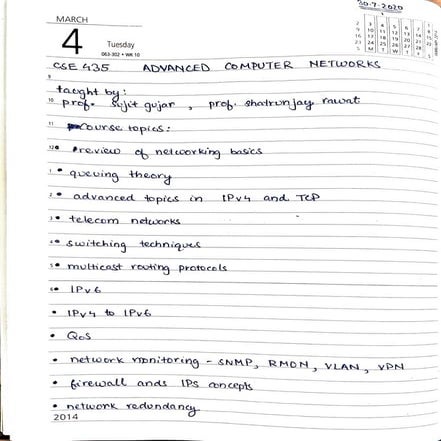 30-7-2020
MARCH
4
Tuesday
063-302 • WK 10
CSE 435 ADVANCED COMPUTER NETWORKS
9
taught by:
10 prof. Sujit gujar, prof. shatrunjay rawat
11 course topics:
12 • review of networking basics
1 • queuing theory
2 • advanced topics in IPv4 and TCP
3 • telecom networks
4 • switching techniques
5 • multicast routing protocols
6 • IPv6
• IPv4 to IPv6
• QoS
• network monitoring - SNMP, RMON, VLAN, VPN
• firewall ands IPS concepts
• network redundancy
2014